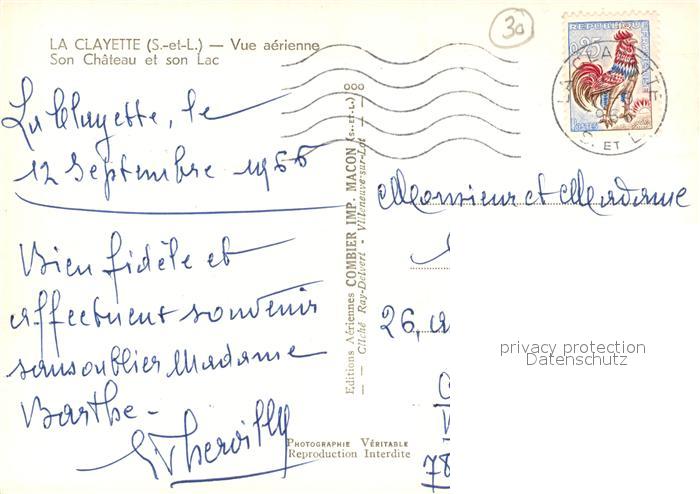 30
LA CLAYETTE (S.-et-L.) — Vue aérienne
Son Château et son Lac
La Clayette, le
12 Septembre 1966
Bien fidèle et
affectueux souvenir
sans oublier Madame
Barthe -
Editions Aériennes COMBIER IMP. MACON (S.-et-L.)
Cliché Ray-Delvert - Villeneuve-sur-Lot
PHOTOGRAPHIE VÉRITABLE
Reproduction Interdite
0,25
REPUBLIQUE FRANCAISE
POSTES
LA CLAYETTE
S. ET L.
Monsieur et Madame
26, a
78
privacy protection
Datenschutz